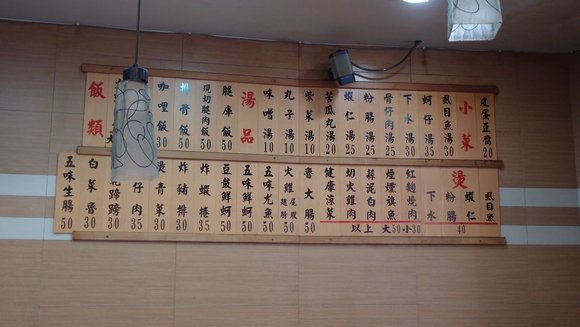 小菜
皮蛋豆腐 20
虱目魚湯 35
蚵仔湯 35
下水湯 30
骨仔肉湯
粉腸湯
蝦仁湯
苦瓜丸湯 20
紫菜湯 10
丸子湯 10
味噌湯 10
湯品
腿庫飯 50
現切腿肉飯 50
排骨飯 50
咖哩飯 50
飯類
燙
虱目魚
蝦仁
粉腸
下水
40
紅麴燒肉
煙燻旗魚
蒜泥白肉
切火雞肉
健康涼菜
以上 大50 小30
魯大腸 50
火雞 屁股 翅膀 50
五味尤魚 50
五味鮮蚵 50
豆鼓鮮蚵 50
炸蝦捲 35
炸豬排 30
燙青菜 30
仔肉 35
白菜魯 30
五味生腸 50